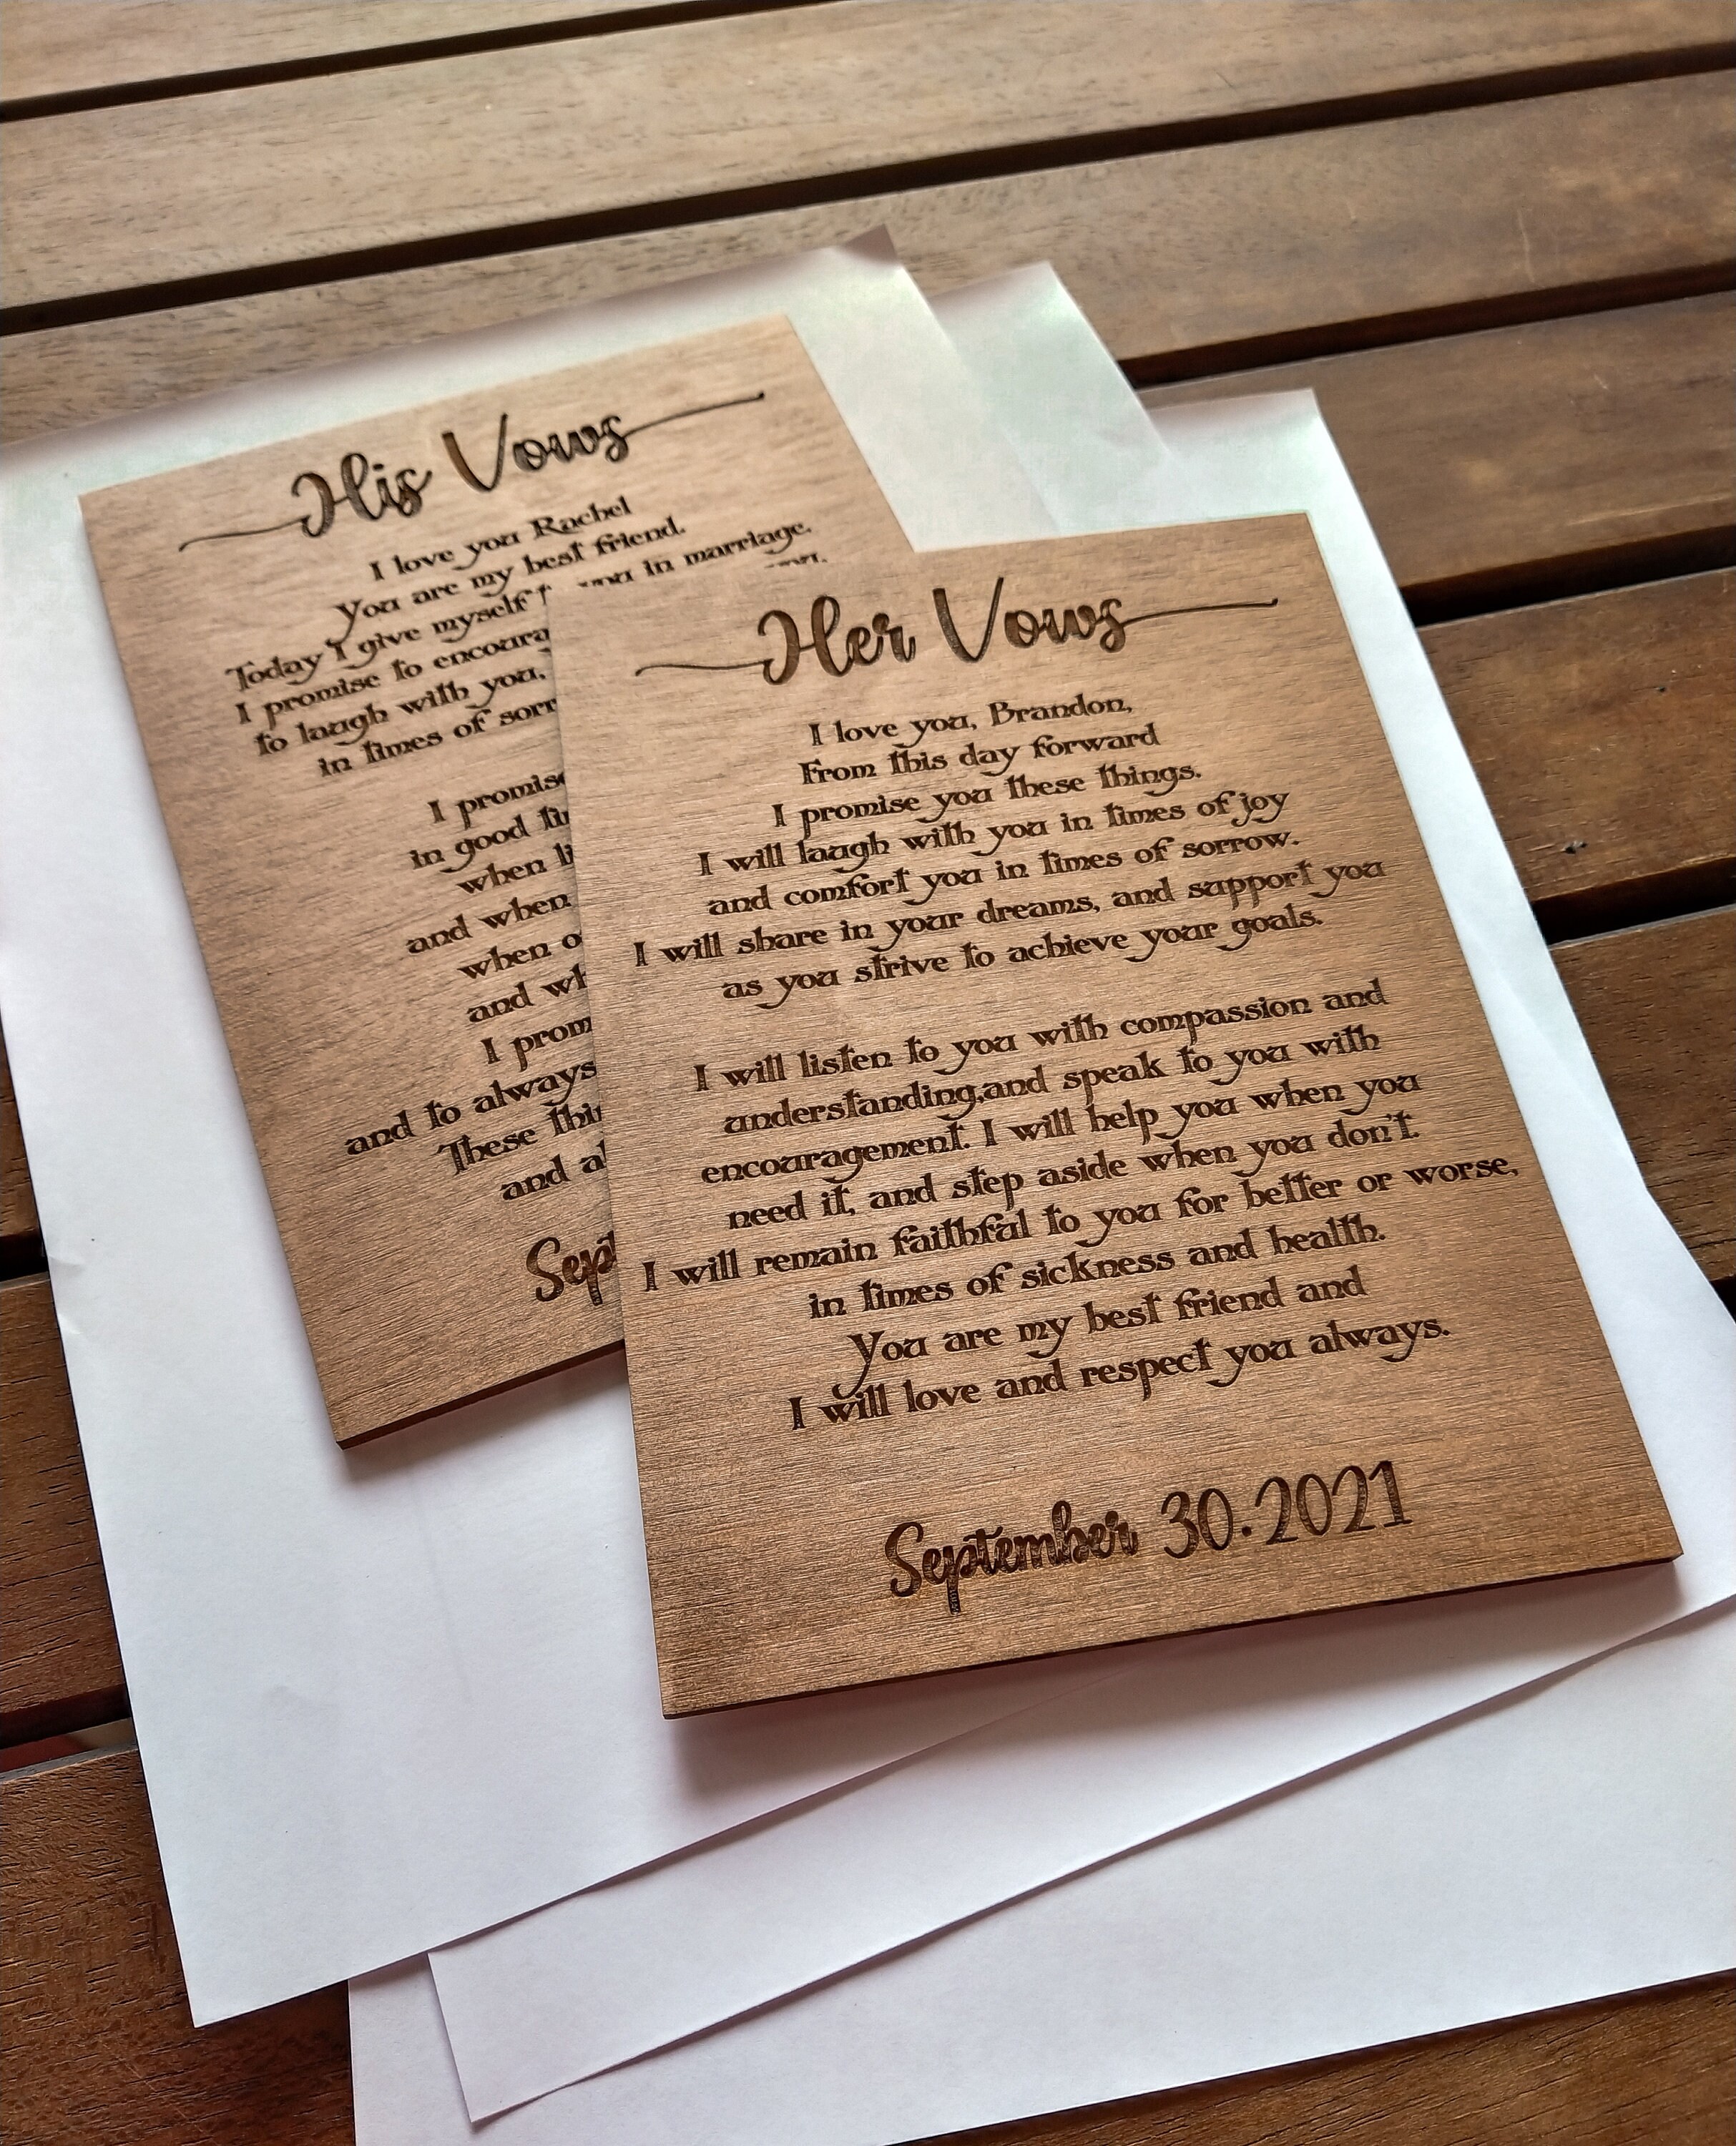 His Vows
I love you Rachel
You are my best friend.
Today I give myself you in marriage.
I promise to you.
to laugh with you,
in times of
I promise
in good
when
and when
when
and
I
and to always
These
and
Her Vows
I love you, Brandon,
From this day forward
I promise you these things.
I will laugh with you in times of joy
and comfort you in times of sorrow.
I will share in your dreams, and support you
as you strive to achieve your goals.
I will listen to you with compassion and
understanding,and speak to you with
encouragement. I will help you when you
need it, and step aside when you don't.
I will remain faithful to you for better or worse,
in times of sickness and health.
You are my best friend and
I will love and respect you always.
September 30.2021